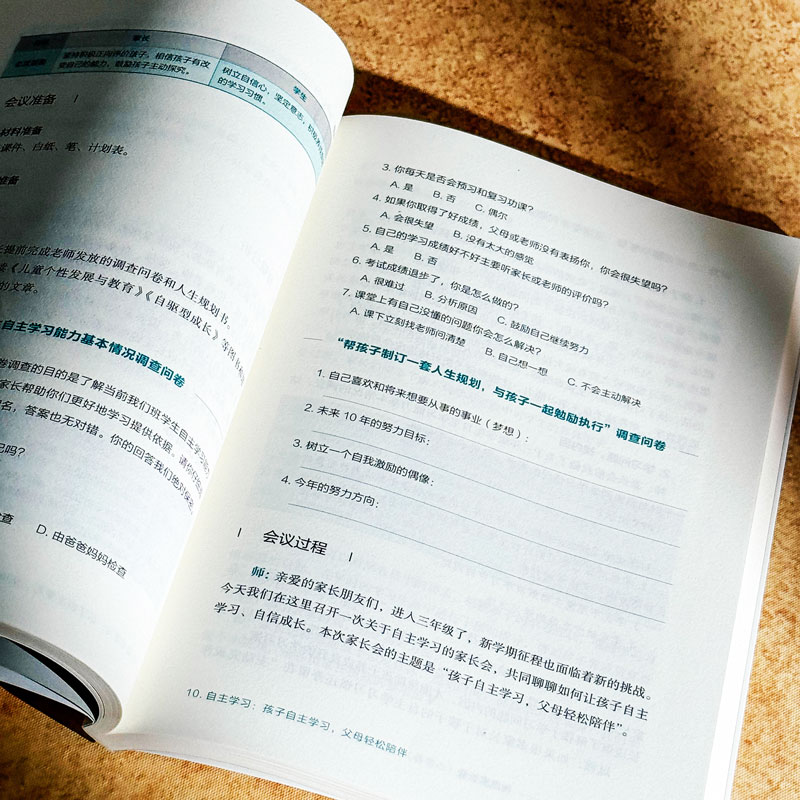 家长
坚持积极正向评价孩子，相信孩子有改
变自己的能力，鼓励孩子主动探究。
学生
树立自信心，坚定意志，
的学习习惯。
会议准备
材料准备
课件、白纸、笔、计划表。
准备
提前完成老师发放的调查问卷和人生规划书。
《儿童个性发展与教育》《自驱型成长》等图书
的文章。
自主学习能力基本情况调查问卷
卷调查的目的是了解当前我们班学生自主学习
家长帮助你们更好地学习提供依据。请你
名，答案也无对错。你的回答我们绝对保密
吗？
检查 D. 由爸爸妈妈检查
3. 你每天是否会预习和复习功课？
A. 是 B. 否 C. 偶尔
4. 如果你取得了好成绩，父母或老师没有表扬你，你会很失望吗？
A. 会很失望 B. 没有太大的感觉
5. 自己的学习成绩好不好主要听家长或老师的评价吗？
A. 是 B. 否
6. 考试成绩退步了，你是怎么做的？
A. 很难过 B. 分析原因 C. 鼓励自己继续努力
7. 课堂上有自己没懂的问题你会怎么解决？
A. 课下立刻找老师问清楚 B. 自己想一想 C. 不会主动解决
“帮孩子制订一套人生规划，与孩子一起勉励执行”调查问卷
1. 自己喜欢和将来想要从事的事业（梦想）：
2. 未来 10 年的努力目标：
3. 树立一个自我激励的偶像：
4. 今年的努力方向：
会议过程
师：亲爱的家长朋友们，进入三年级了，新学期征程也面临着新的挑战。
今天我们在这里召开一次关于自主学习的家长会，共同聊聊如何让孩子自主
学习、自信成长。本次家长会的主题是“孩子自主学习，父母轻松陪伴”。
10. 自主学习：孩子自主学习，父母轻松陪伴